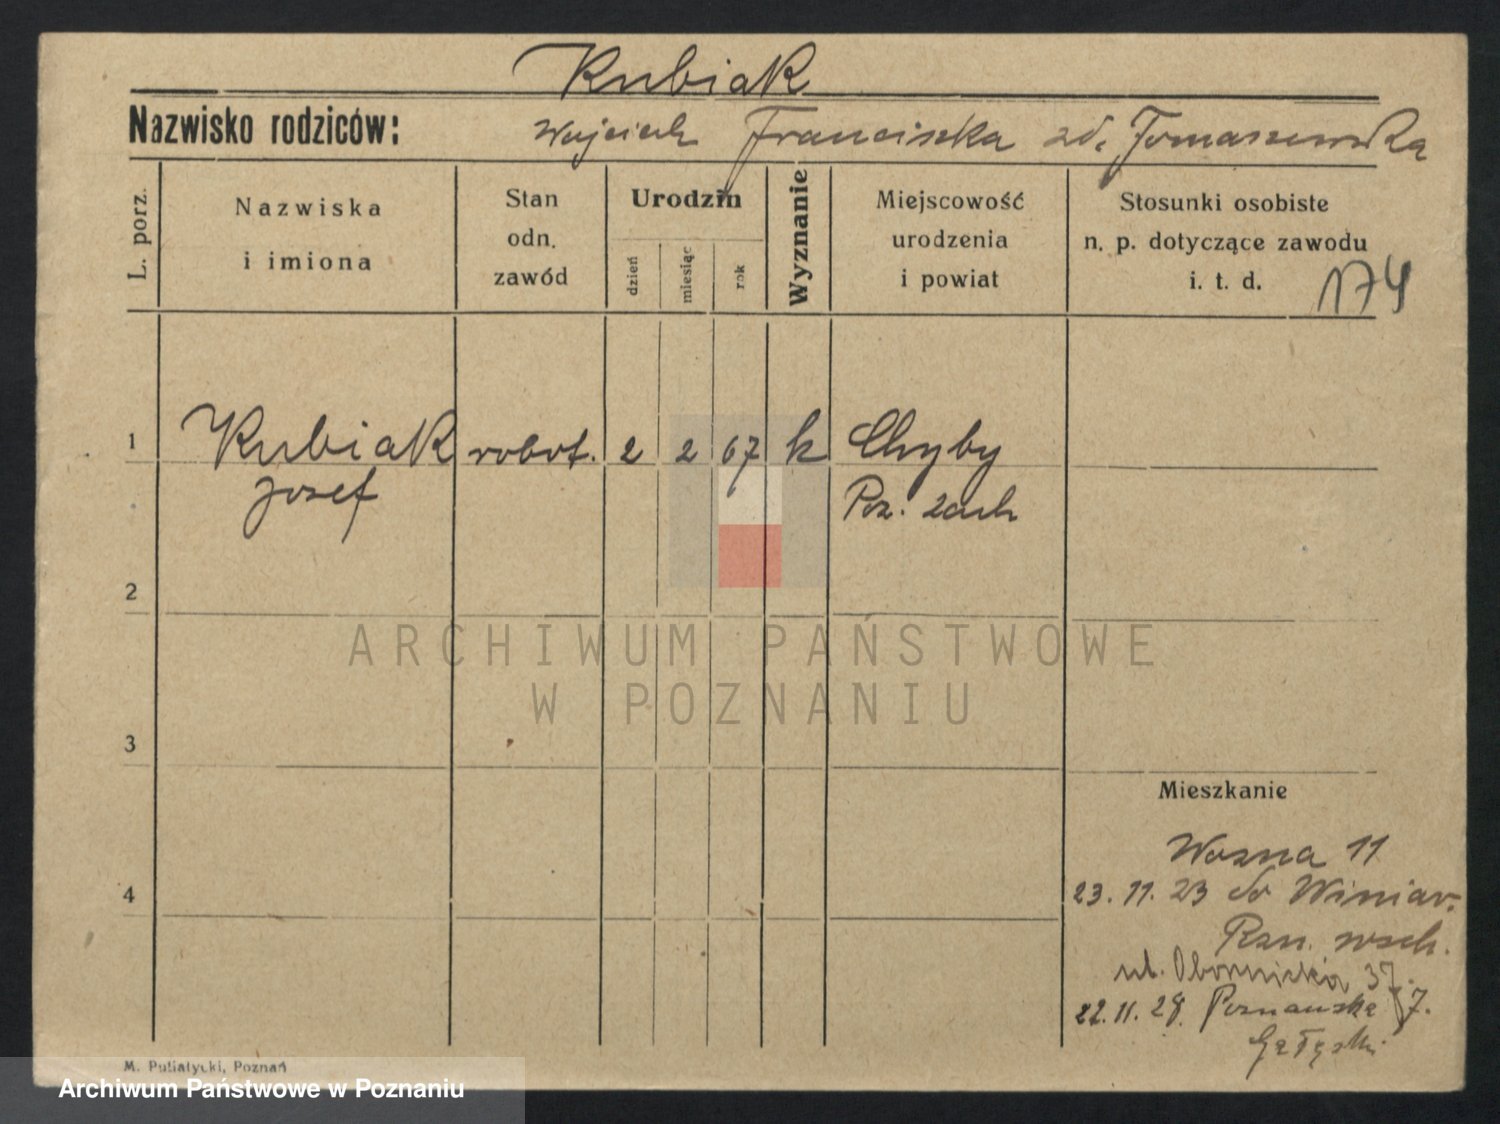 Kubiak
Nazwisko rodziców:
Wojciech Franciszka zd. Tomaszewska
L. porz.
Nazwiska
i imiona
Stan
odn.
zawód
Urodzin
dzień
miesiąc
rok
Wyznanie
Miejscowość
urodzenia
i powiat
Stosunki osobiste
n. p. dotyczące zawodu
i. t. d.
174
1 Kubiak robot. 2 2 67 k Chyby
Josef Poz. zach
2
3
4
Mieszkanie
Wozna 11
23. 11. 23 do Winiar.
Pzn. wsch.
ul. Obornicka 37.
22. 11. 28. Poznanska 7.
ARCHIWUM PAŃSTWOWE
W POZNANIU
M. Putiatycki, Poznań
Archiwum Państwowe w Poznaniu